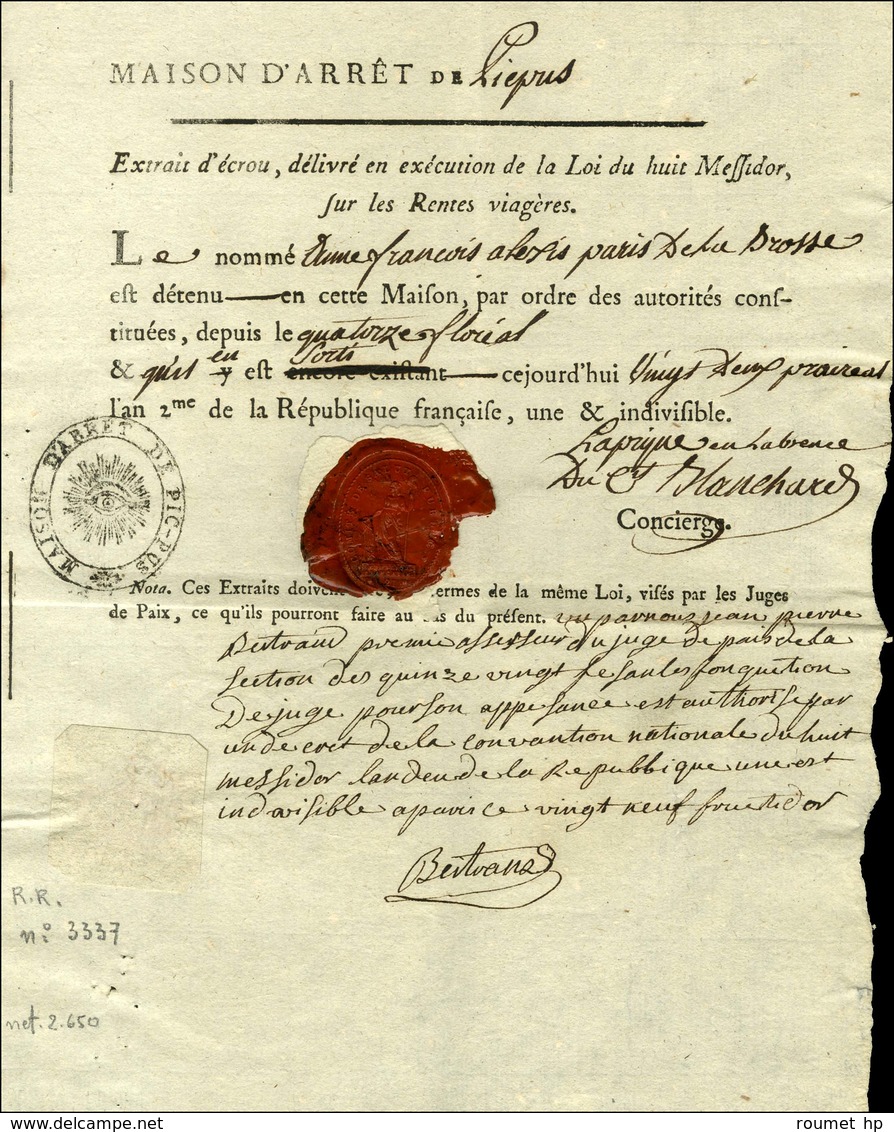 MAISON D'ARRÊT DE Picpus
Extrait d'écrou, délivré en exécution de la Loi du huit Messidor,
sur les Rentes viagères.
Le nommé Anne françois alexis paris De La Brosse
est détenu en cette Maison, par ordre des autorités cons-
tituées, depuis le quatorze floréal
& qu'il en est sorti cejourd'hui Vingt Deux praireal
l'an 2me de la République française, une & indivisible.
Laprigne en Labsence
Du Ct Blanchard
Concierge.
MAISON D'ARRET DE PIC-PUS
Nota. Ces Extraits doivent termes de la même Loi, visés par les Juges
de Paix, ce qu'ils pourront faire au bas du présent. vu parnous jean pierre
Bertrand premie assesseur du juge de paix de la
section des quinze vingt fesan les fonquetion
De juge pour son appesance est authorise par
un decret de la convantion nationale du huit
messidor lan deu de la Republique une est
indivisible a paris ce vingt neuf fructidor
Bertrand
R.R.
n° 3337
net. 2.650
DELCAMPE.NET
roumet hp